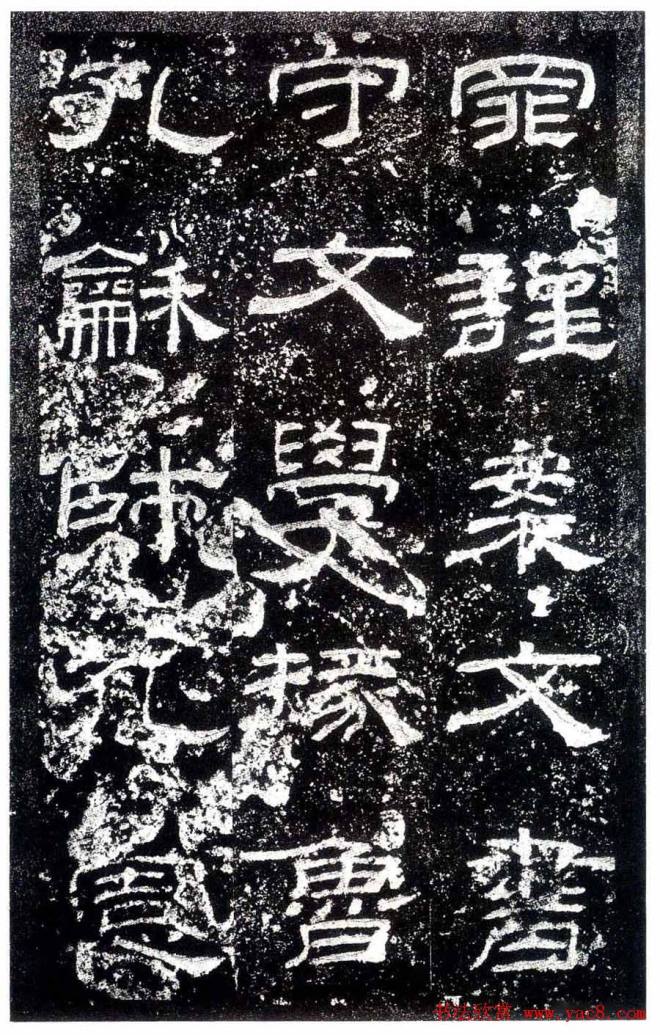 罪謹案文書
守文學掾魯
孔龢師孔憲
书法欣赏 www.yac8.com